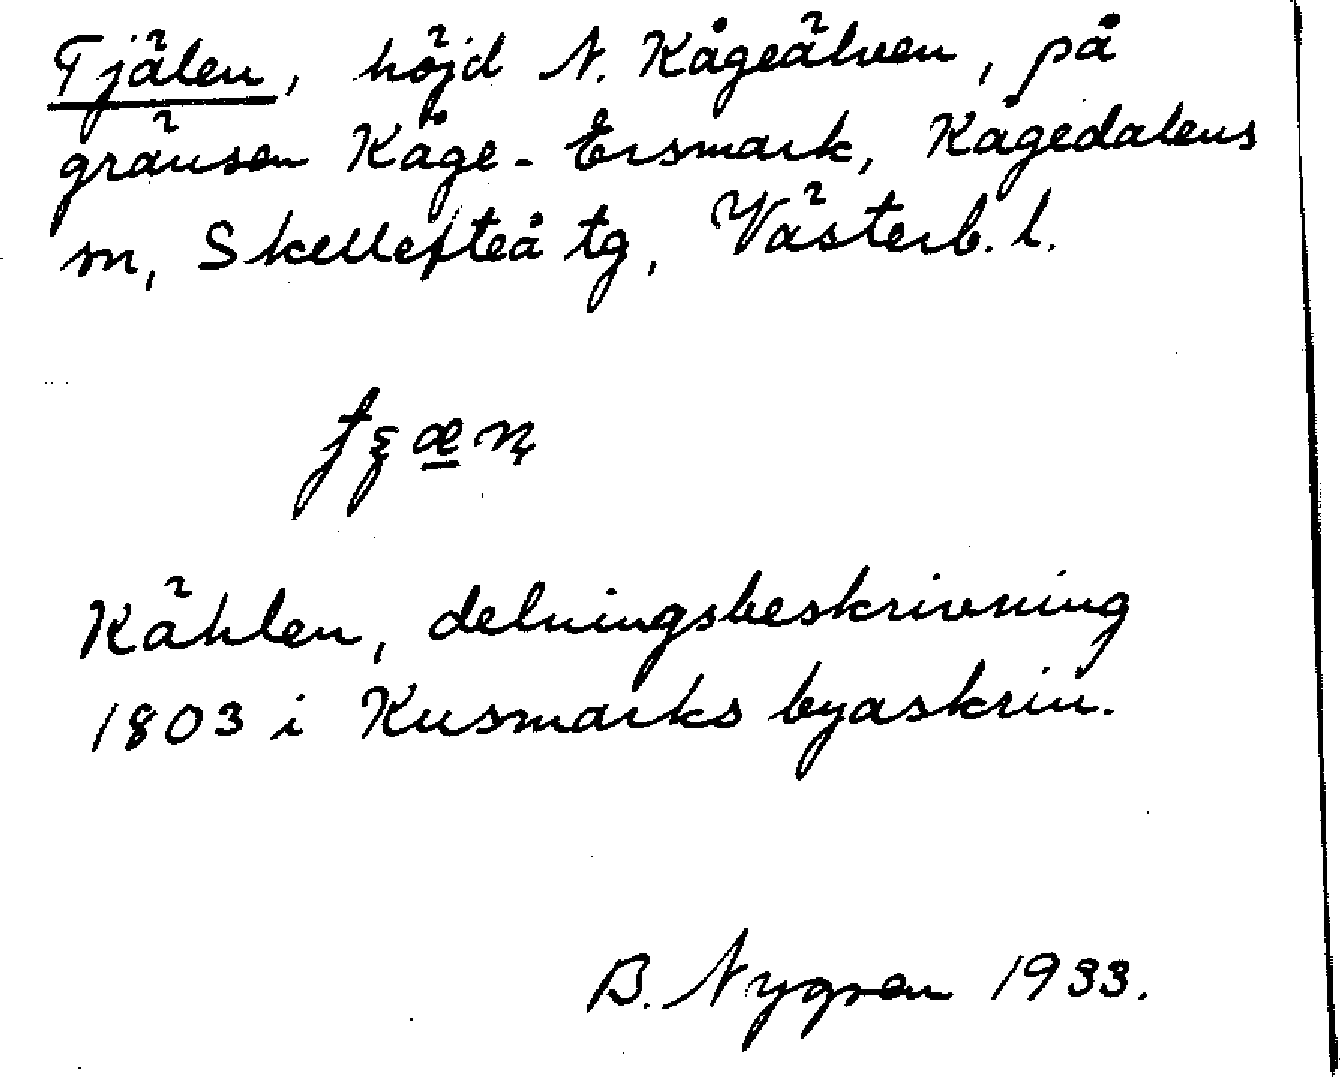 Tjälen, höjd N. Kågeälven, på
gränsen Kåge - Ersmark, Kågedalens
m, Skellefteå tg, Västerb. l.
Kählen, delningsbeskrivning
1803 i Kusmarks byaskrin.
B. Nygren 1933.